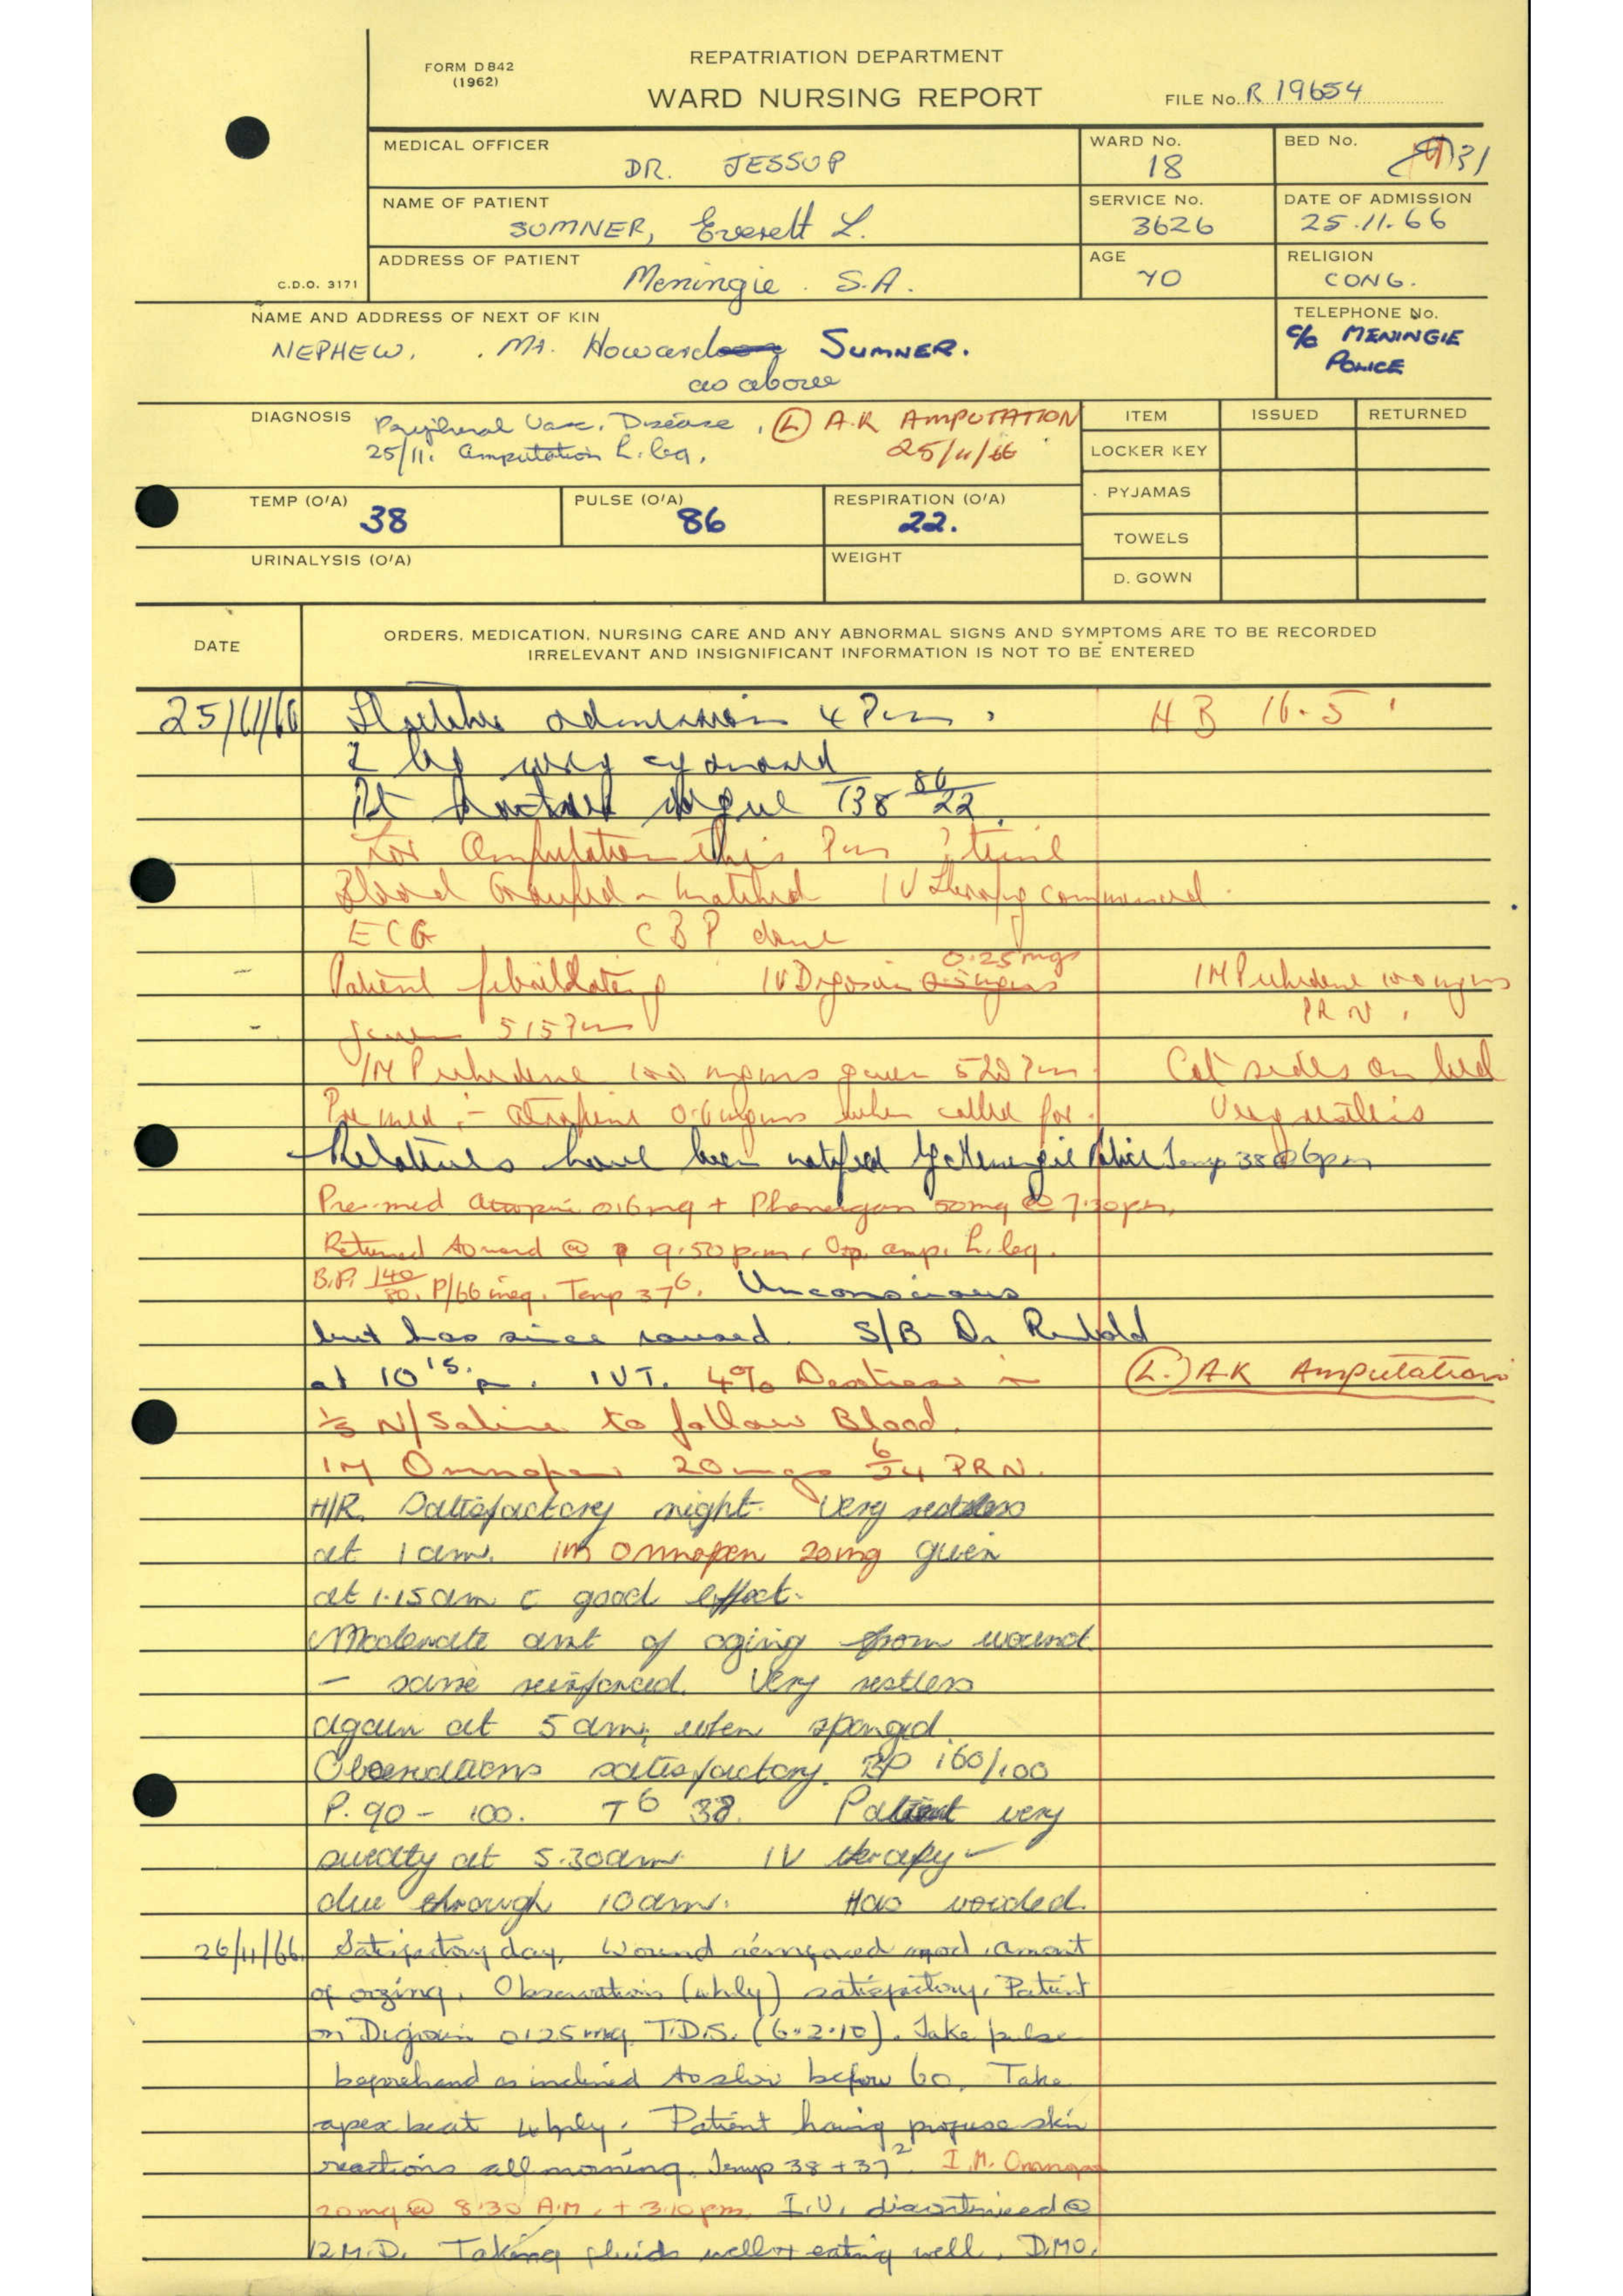 FORM D842
(1962)
REPATRIATION DEPARTMENT
WARD NURSING REPORT
FILE No. R 19654
MEDICAL OFFICER
DR. JESSUP
WARD No.
18
BED No.
31
NAME OF PATIENT
SUMNER, Everett L.
SERVICE No.
3626
DATE OF ADMISSION
25.11.66
C.D.O. 3171
ADDRESS OF PATIENT
Meningie. S.A.
AGE
70
RELIGION
CONG.
NAME AND ADDRESS OF NEXT OF KIN
NEPHEW. Mr. Howard SUMNER.
as above
TELEPHONE No.
c/o MENINGIE
POLICE
DIAGNOSIS
Peripheral Vasc. Disease. (L) A.K AMPUTATION
25/11. Amputation L. leg. 25/11/66
ITEM ISSUED RETURNED
LOCKER KEY
PYJAMAS
TOWELS
D. GOWN
TEMP (O/A)
38
PULSE (O/A)
86
RESPIRATION (O/A)
22.
URINALYSIS (O/A)
WEIGHT
DATE
ORDERS, MEDICATION, NURSING CARE AND ANY ABNORMAL SIGNS AND SYMPTOMS ARE TO BE RECORDED
IRRELEVANT AND INSIGNIFICANT INFORMATION IS NOT TO BE ENTERED
25/11/66 admission 4 Pm. HB 16.5
L leg very cyanosed
Pt T38 86/22.
For Amputation this Pm ? time
Blood Grouped - Matched IV Therapy commenced.
ECG CBP done
Patient fibrillating IV Digoxin 0.25mgs IM Pethidine 100 mgms
given 515 Pm PRN.
IM Pethidine 100 mgms given 520 Pm Cot sides on bed
Pre med :- atropine 0.6mgms when called for. Very restless
Relatives have been notified by Meningie Police Temp 38 @ 6pm
Pre-med Atropin 0.6mg + Phenergan 50mg @ 7.30pm.
Returned to ward @ 9.50p.m. Op. amp. L. leg.
B.P. 140/80. P/66 irreg. Temp 37⁶. Unconscious
but has since roused. S/B Dr
at 10¹⁵ p. IVT. 4% Dextrose in (L.) A.K Amputation
1/5 N/Saline to follow Blood.
IM Omnopon 20mgs 6/24 PRN.
H/R. Satisfactory night. Very restless
at 1am. IM Omnopen 20mg given
at 1.15am c good effect.
Moderate amt of ozing from wound
- same reinforced. Very restless
again at 5am, when sponged.
Observations satisfactory. BP 160/100
P. 90 - 100. T 38. Patient very
sweaty at 5.30am. IV therapy
due through 10am. Has voided.
26/11/66. Satisfactory day. Wound reinforced mod. amont
of ozing. Observations (4hly) satisfactory. Patient
on Digoxin 0.25mg T.D.S. (6.2.10). Take pulse
beforehand as inclined to slow before 60. Take
apex beat 4hrly. Patient having profuse skin
reactions all morning. Temp 38 + 37². I.M. Omnopon
20mg @ 8.30 A.M. + 3.10pm. I.V. discontinued @
12 M.D. Taking fluids well + eating well. D.M.O.